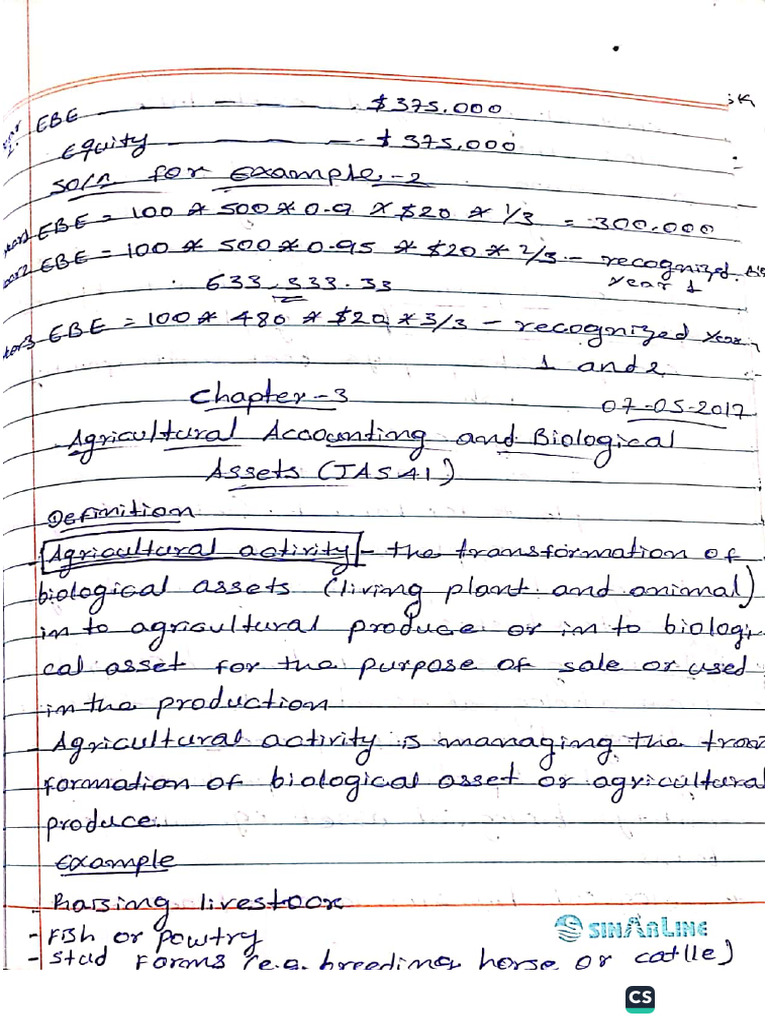 EBE - - - $375.000
Equity - - - $375.000
Soln for example-2
Year1 EBE = 100 * 500 * 0.9 * $20 * 1/3 = 300.000
EBE = 100 * 500 * 0.95 * $20 * 2/3 - recognized.
year 1
633,333.33
EBE = 100 * 480 * $20 * 3/3 - recognized year
1 and 2
Chapter-3
07-05-2017
Agricultural Accounting and Biological
Assets (IAS41)
Definition
Agricultural activity - the transformation of
biological assets (living plant and animal)
in to agricultural produce or in to biologi
cal asset for the purpose of sale or used
in the production
- Agricultural activity is managing the
formation of biological asset or agricultural
produce.
Example
- Raising livestock
- Fish or poultry
- Stud Farms (e.g. breeding horse or catlle)
SINARLINE
CS